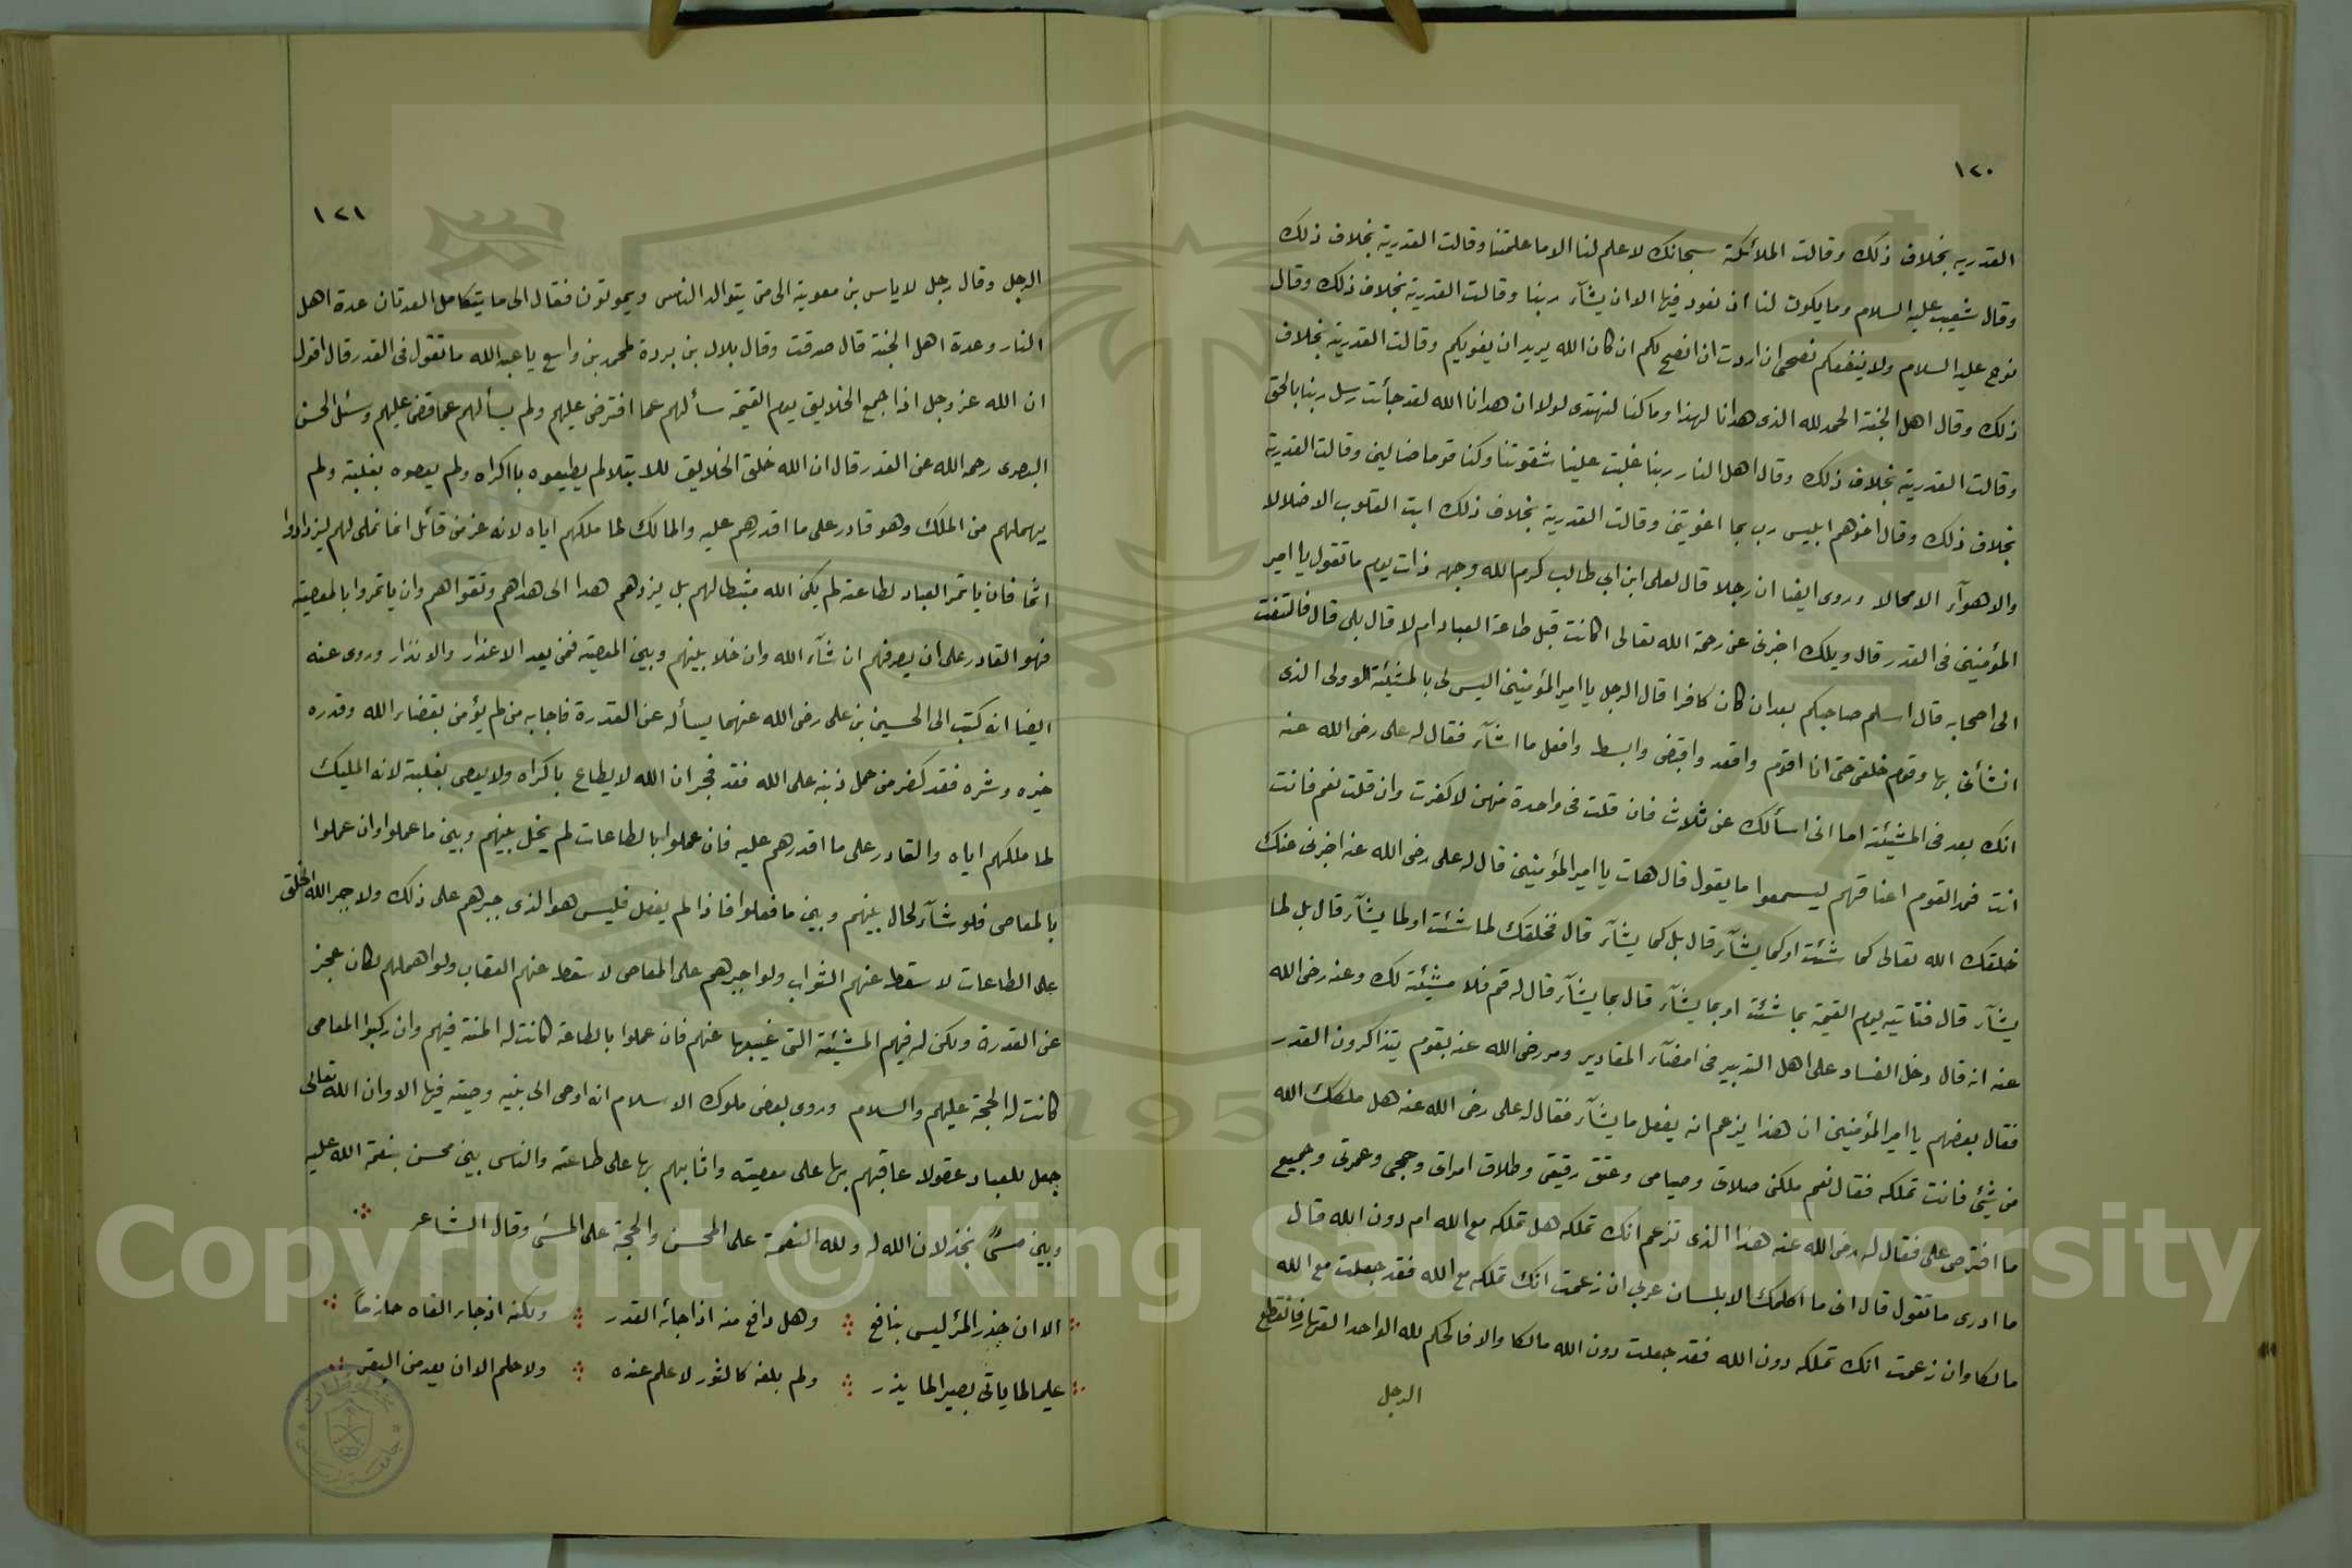 ١٢٠
القدريه بخلاف ذلك وقالت الملائكة سبحانك لا علم لنا الا ما علمتنا وقالت القدرية بخلاف ذلك
وقال شعيب عليه السلام وما يكون لنا ان نعود فيها الا ان يشآء ربنا وقالت القدرية بخلاف ذلك وقال
نوح عليه السلام ولا ينفعكم نصحى ان اردت ان انصح لكم ان كان الله يريد ان يغويكم وقالت القدرية بخلاف
ذلك وقال اهل الجنة الحمد لله الذى هدانا لهذا وما كنا لنهتدى لولا ان هدانا الله لقد جأت رسل ربنا بالحق
وقالت القدرية بخلاف ذلك وقال اهل النار ربنا غلبت علينا شقوتنا وكنا قوما ضالين وقالت القدرية
بخلاف ذلك وقال اخوهم ابليس رب بما اغويتنى وقالت القدرية بخلاف ذلك ابت القلوب الا ضلالا
والاهوآء الا محالا وروى ايضا ان رجلا قال لعلى ابن ابي طالب كرم الله وجهه ذات يوم ما تقول يا امير
المؤمنين فى القدر قال ويلك اخبرنى عن رحمة الله تعالى اكانت قبل طاعة العباد ام لا قال بلى قال فالتفت
الى اصحابه قال اسلم صاحبكم بعد ان كان كافرا قال الرجل يا امير المؤمنين اليس لى بالمشيئة الاولى الذى
انشأنى بها وقوم خلقى حتى انا اقوم واقعد واقبض وابسط وافعل ما اشآء فقال له على رضى الله عنه
انك بعد فى المشيئة اما انى اسألك عن ثلاث فان قلت فى واحدة منهن لا كفرت وان قلت نعم فانت
انت فمد القوم اعناقهم ليسمعوا ما يقول قال هات يا امير المؤمنين قال له على رضى الله عنه اخبرنى عنك
خلقك الله تعالى كما شئت او كما يشآء قال بل كما يشآء قال فخلقك لما شئت او لما يشآء قال بل لما
يشآء قال فتاتيه يوم القيمة بما شئت او بما يشآء قال بما يشآء قال له قم فلا مشيئة لك وعنه رضى الله
عنه انه قال دخل الفساد على اهل التدبير فى امضآء المقادير ومر رضى الله عنه بقوم يتذاكرون القدر
فقال بعضهم يا امير المؤمنين ان هذا يزعم انه يفعل ما يشآء فقال له على رضى الله عنه هل ملكك الله
من شئ فانت تملكه فقال نعم ملكنى صلاتى وصيامى وعتق رقيقى وطلاق امراتى وحجى وعمرتى وجميع
ما افترض على فقال له رضى الله عنه هذا الذى تزعم انك تملكه هل تملكه مع الله ام دون الله قال
ما ادرى ما تقول قال انى ما اكلمك الا بلسان عربي ان زعمت انك تملكه مع الله فقد جعلت مع الله
مالكا وان زعمت انك تملكه دون الله فقد جعلت دون الله مالكا والا فالحكم لله الواحد القهار فانقطع
الرجل
١٢١
الرجل وقال رجل لاياس بن معوية الى متى يتوالد الناس ويموتون فقال الى ما يتكامل العدتان عدة اهل
النار وعدة اهل الجنة قال صدقت وقال بلال بن بردة لمحمد بن واسع يا عبد الله ما تقول فى القدر قال اقول
ان الله عز وجل اذا جمع الخلايق يوم القيمة سألهم عما افترض عليهم ولم يسألهم عما قضى عليهم وسئل الحسن
البصرى رحمه الله عن القدر قال ان الله خلق الخلايق للابتلا لم يطيعوه باكراه ولم يعصوه بغلبة ولم
يهملهم من الملك وهو قادر على ما اقدرهم عليه والمالك لما ملكهم اياه لانه عز من قائل انما نملى لهم ليزدادوا
اثما فان ياتمر العباد لطاعته لم يكن الله مثبطا لهم بل يزدهم هدا الى هداهم وتقواهم وان ياتمروا بالمعصية
فهو القادر على ان يصرفهم ان شآء الله وان خلا بينهم وبين المعصية فمن بعد الاعذار والانذار وروى عنه
ايضا انه كتب الى الحسين بن على رضى الله عنهما يسأله عن القدرة فاجابه من لم يؤمن بقضاء الله وقدره
خيره وشره فقد كفر من حمل ذنبه على الله فقد فجر ان الله لا يطاع باكراه ولا يعصى بغلبة لانه المليك
لما ملكهم اياه والقادر على ما اقدرهم عليه فان عملوا بالطاعات لم يخل بينهم وبين ما عملوا وان عملوا
بالمعاصى فلو شآء لحال بينهم وبين ما فعلوا فاذا لم يفعل فليس هو الذى جبرهم على ذلك ولا جبر الله الخلق
على الطاعات لاسقط عنهم الثواب ولو اجبرهم على المعاصى لاسقط عنهم العقاب ولو اهملهم لكان عجز
عن القدرة ولكن له فيهم المشيئة التى غيبها عنهم فان عملوا بالطاعة كانت له المنة فيهم وان ركبوا المعاصى
كانت له الحجة عليهم والسلام وروى بعض ملوك الاسلام انه اوصى الى بنيه وصية فيها الا وان الله تعالى
جعل للعباد عقولا عاقبهم بها على معصيته واثابهم بها على طاعته والناس بين محسن بنعمة الله عليه
وبين مسئً بخذلان الله له ولله النعمة على المحسن والحجة على المسئ وقال الشاعر
الا ان حذر المرْ ليس بنافع وهل دافع منه اذا جائه القدر ولكنه اذ جاء الفاه حازماً
عليما لما ياتى بصير الما يذر ولم يلفه كالثور لا علم عنده ولا حلم الا ان يعد من البقر
Copyright © King Saud University
1957